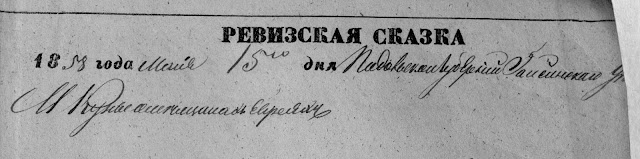 РЕВИЗСКАЯ СКАЗКА
1853 года Мая 15го дня Подольской Губернии Гайсинского у
М мещанах евреях